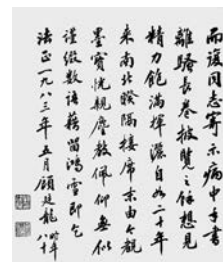 同志寄示病中手書
離騷長卷披覽之餘想見
精力飽滿揮灑自如二十年
來南北睽隔接席末由今觀
墨寶恍親麈教佩仰無似
謹綴數語藉留鴻雪即乞
法正一九八三年五月顧廷龍
時年八十